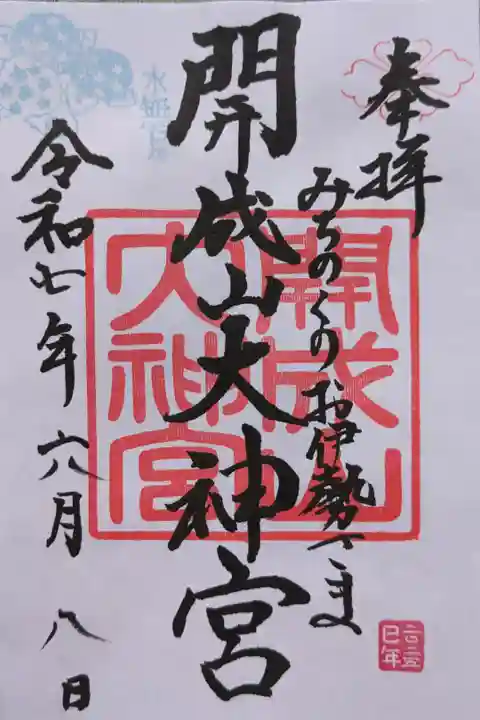 奉拝
みちのくのお伊勢さま
開成山大神宮
令和七年六月八日
開成山
大神宮
二〇二五
巳年
水無月